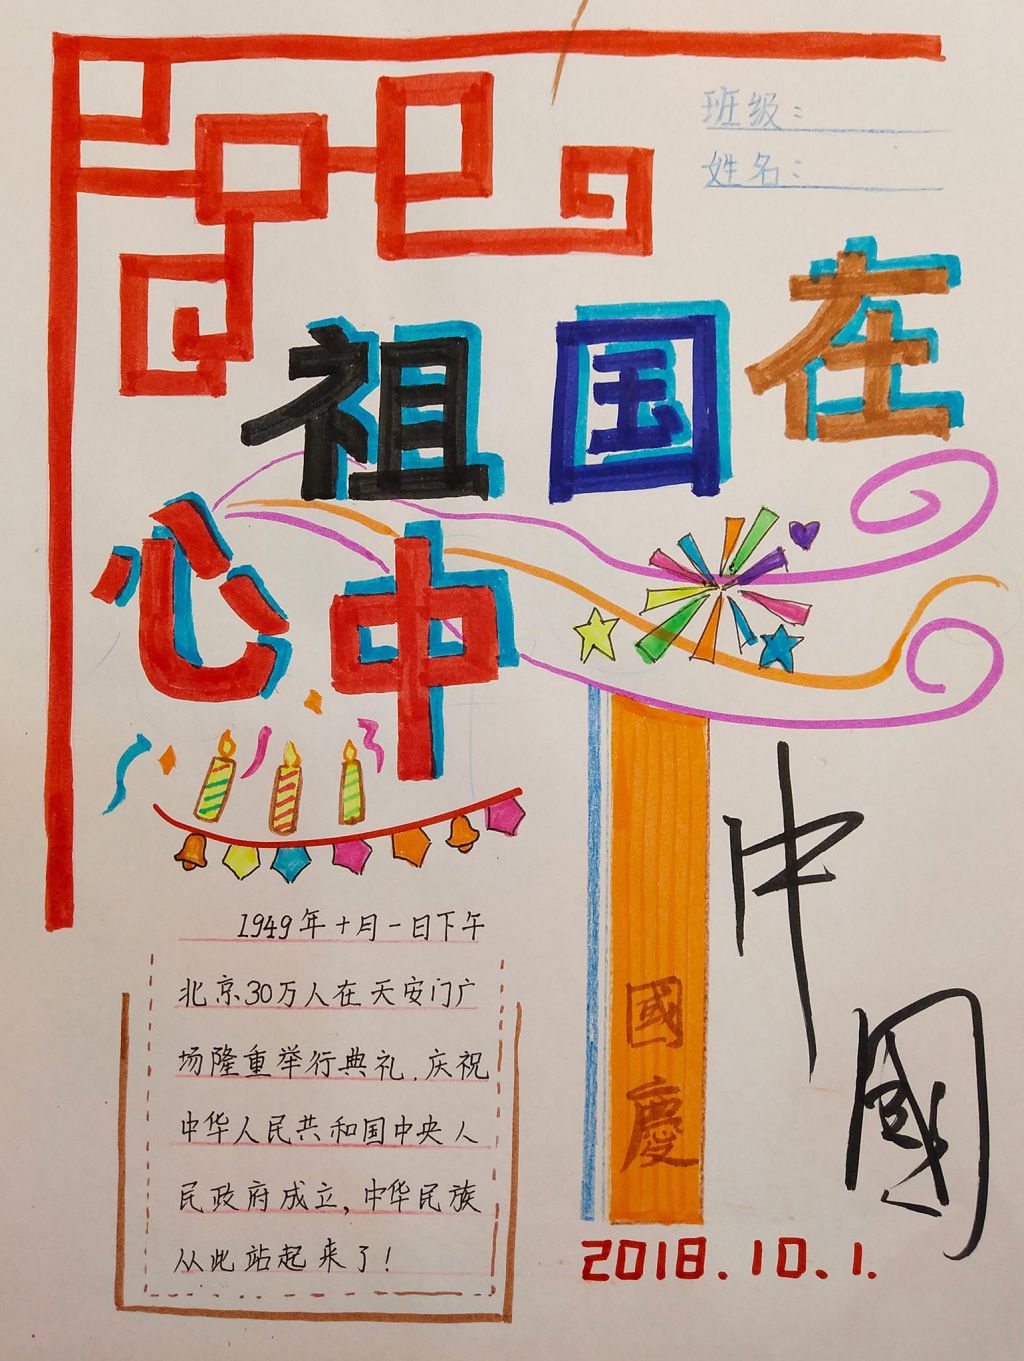 班级：
姓名：
祖国在
心中
1949年十月一日下午
北京30万人在天安门广
场隆重举行典礼，庆祝
中华人民共和国中央人
民政府成立，中华民族
从此站起来了！
國慶
中國
2018.10.1.